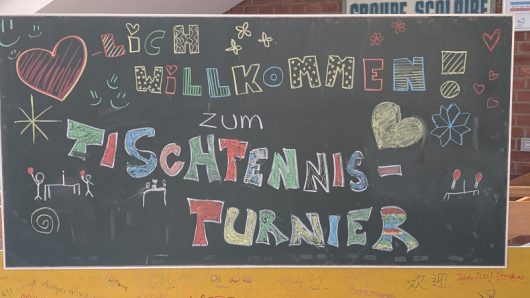 GROUPE SCOLAIRE
-LICH
WILLKOMMEN !
zum
TISCHTENNIS-
TURNIER
欢迎